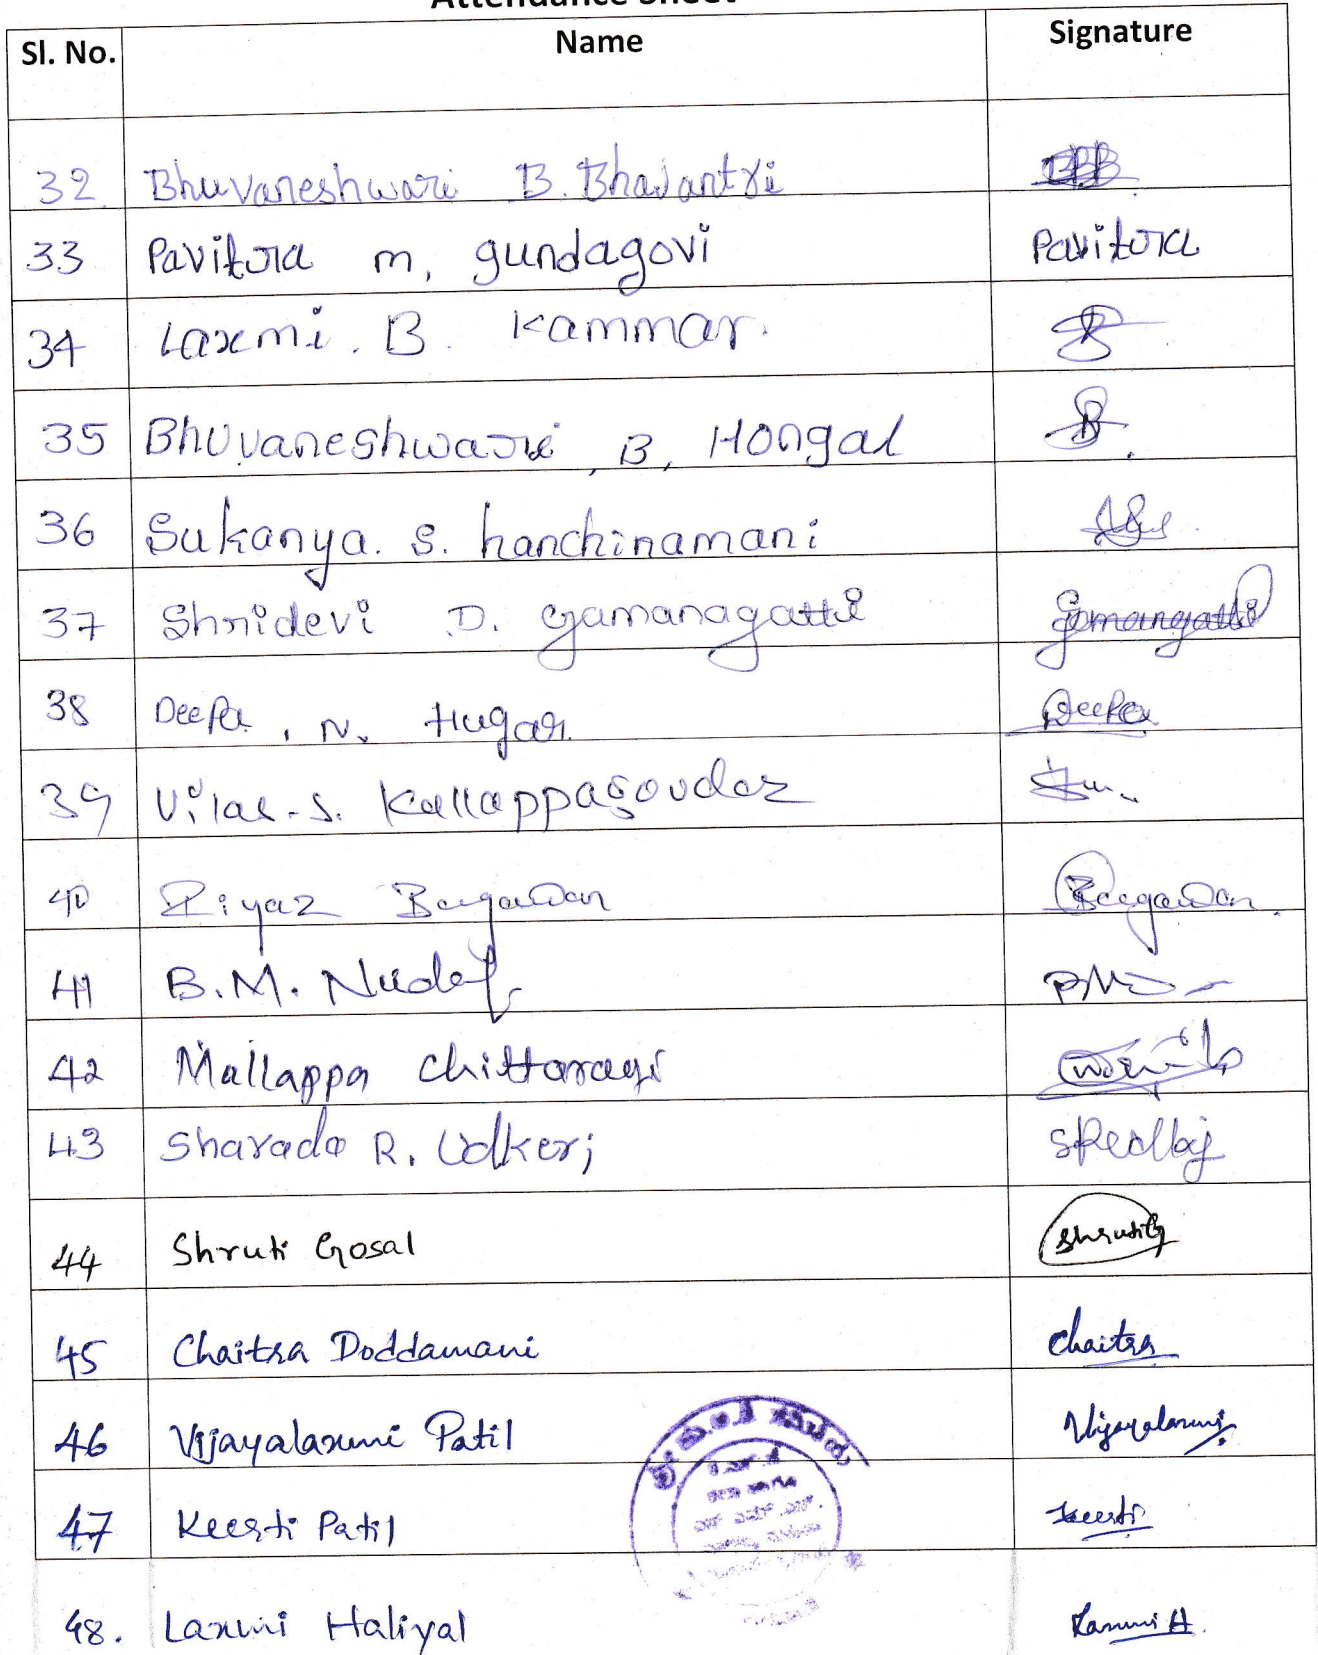 Attendance Sheet
Sl. No. Name Signature
32 Bhuvaneshwari B. Bhajantri
33 Pavitra m. gundagovi Pavitra
34 Laxmi. B. Kammar.
35 Bhuvaneshwari, B, Hongal B.
36 Sukanya. S. hanchinamani
37 Shridevi D. gamanagatti Gamangatti
38 Deepa, N. Hugar. Deepa
39 Vilas.S. Kallappagoudar
40 Riyaz Bagawan Bagawan.
41 B.M. Nudaf
42 Mallappa Chittaragi
43 Sharada R. Udkeri
44 Shruti Gosal ShrutiG
45 Chaitra Doddamani Chaitra
46 Vijayalaxmi Patil Vijayalaxmi
47 Keerti Patil Keerti
48. Laxmi Haliyal Laxmi H.